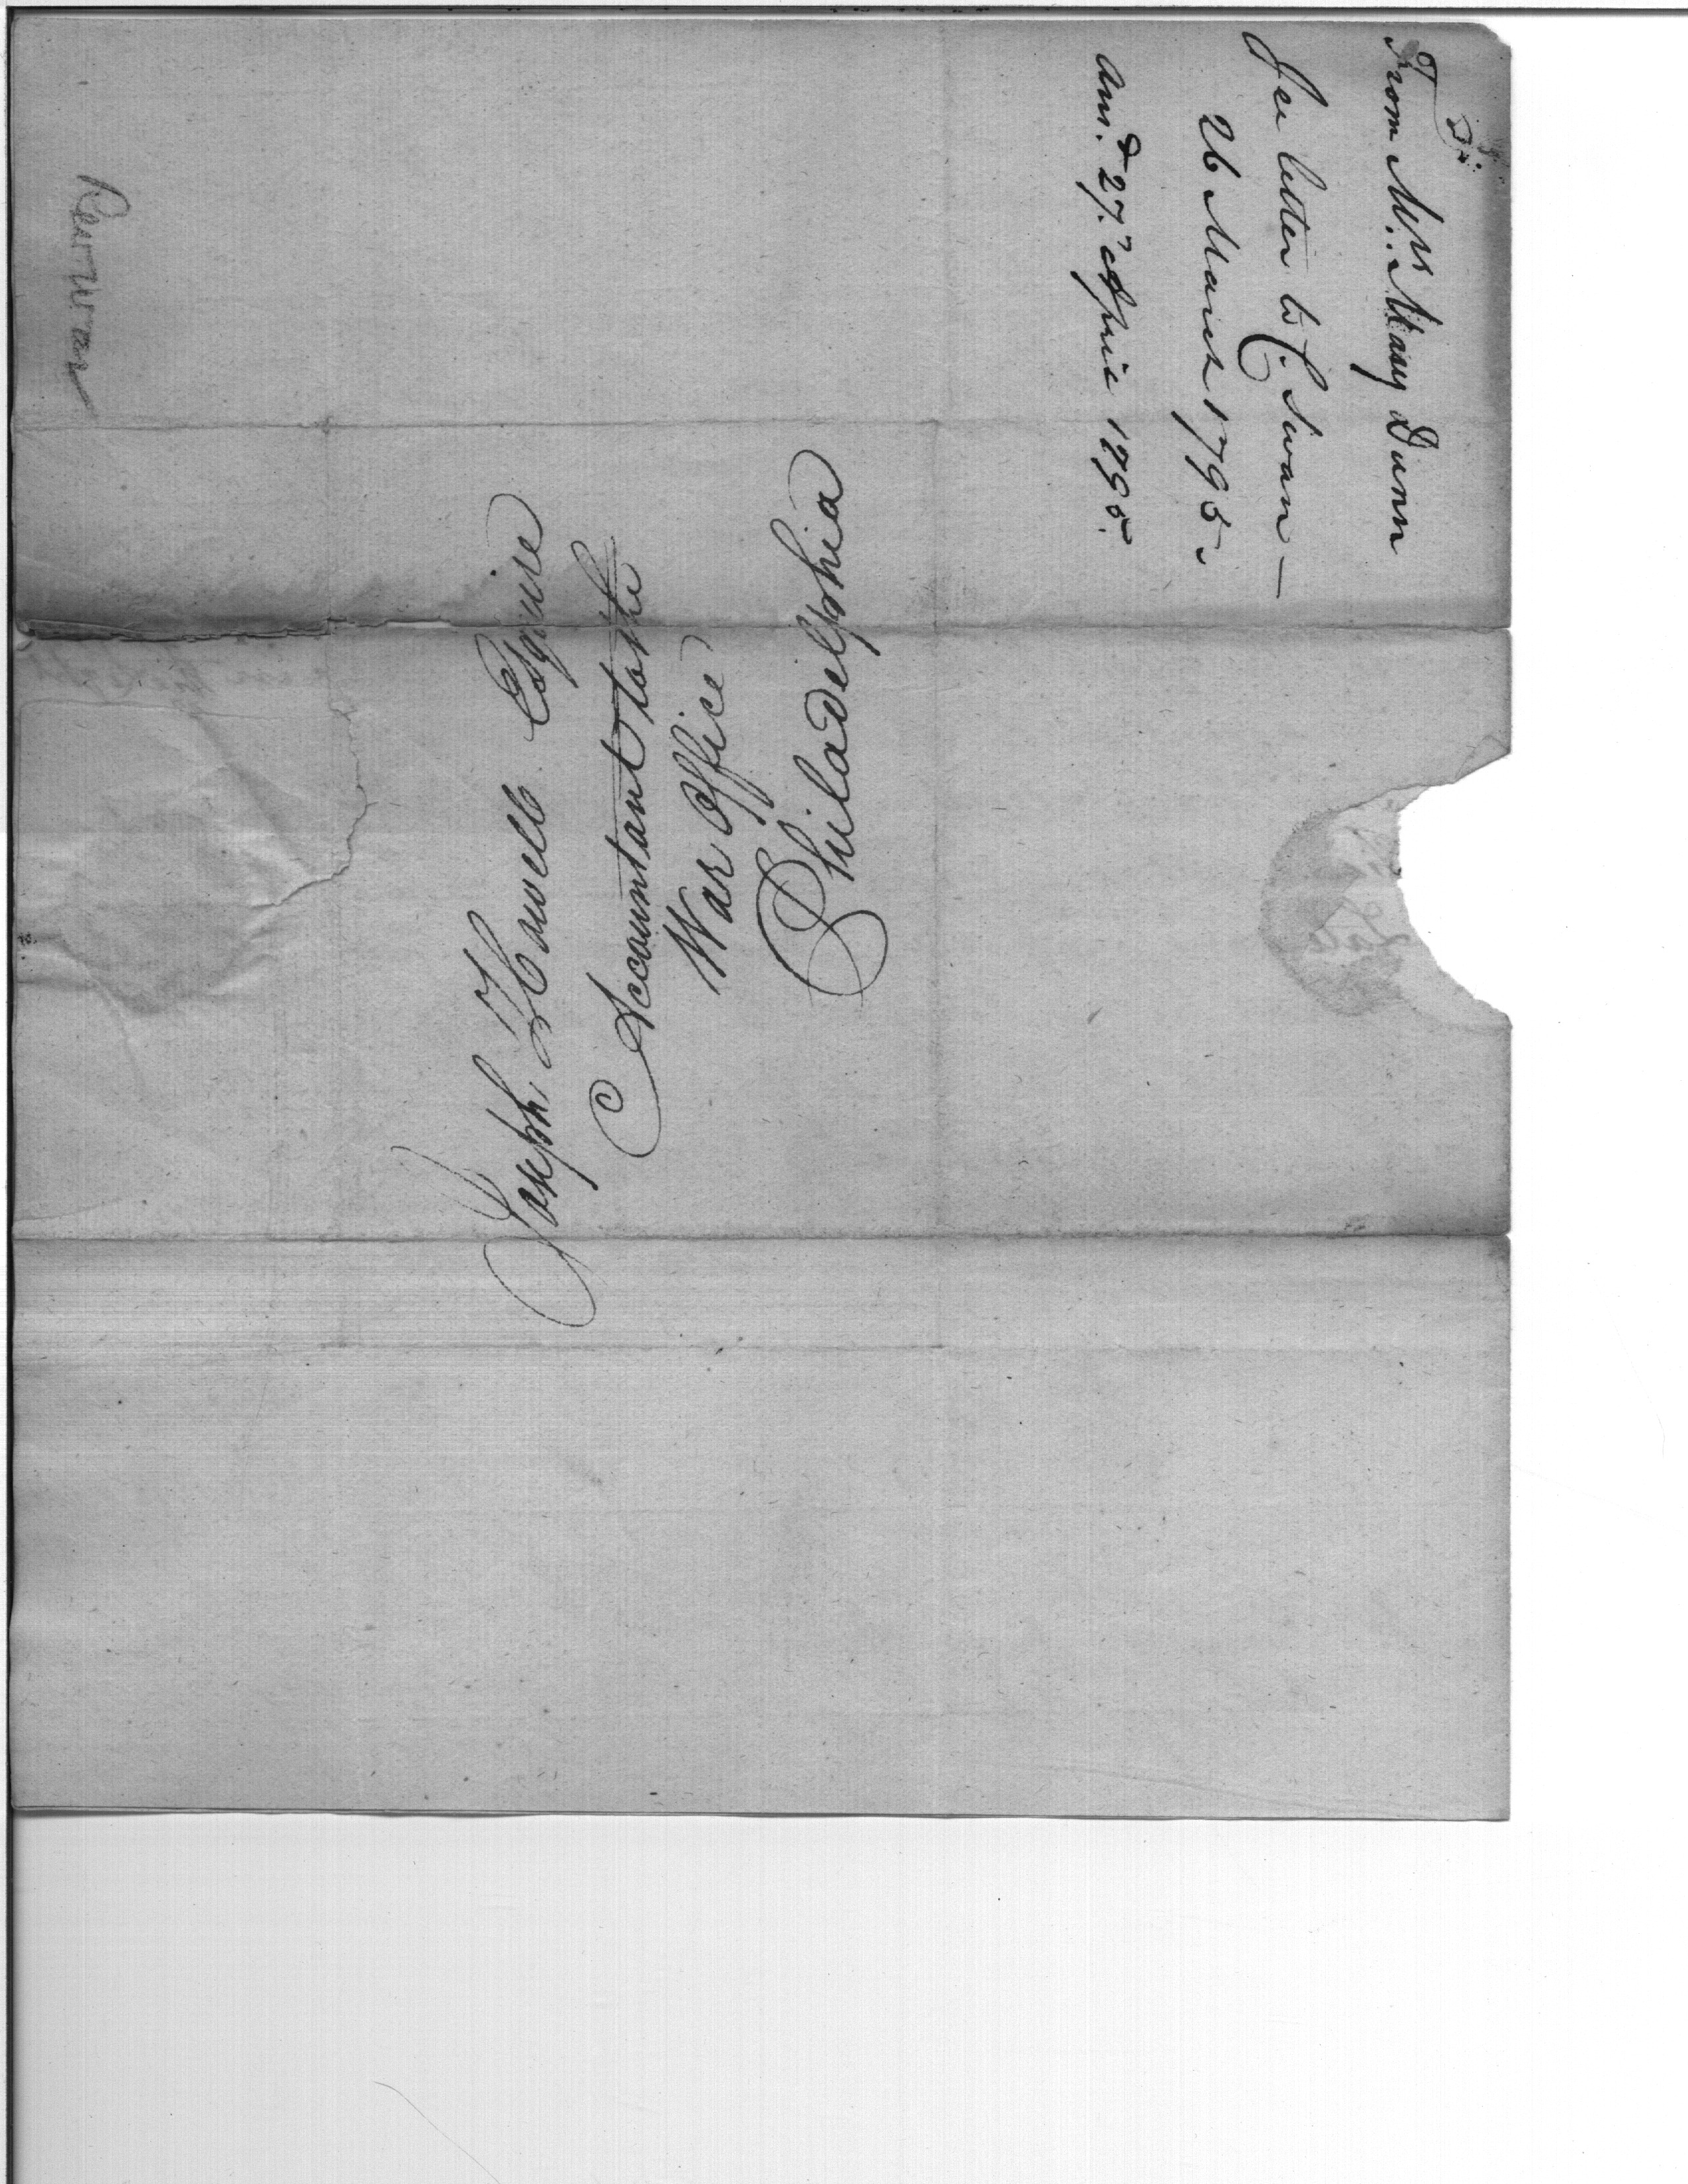 From Mrs. Mary Dunn
See letter to C. Swan —
26 March 1795.
Ansd. 27. April 1795.
Joseph Howell Esquire
Accountant to the
War Office
Philadelphia